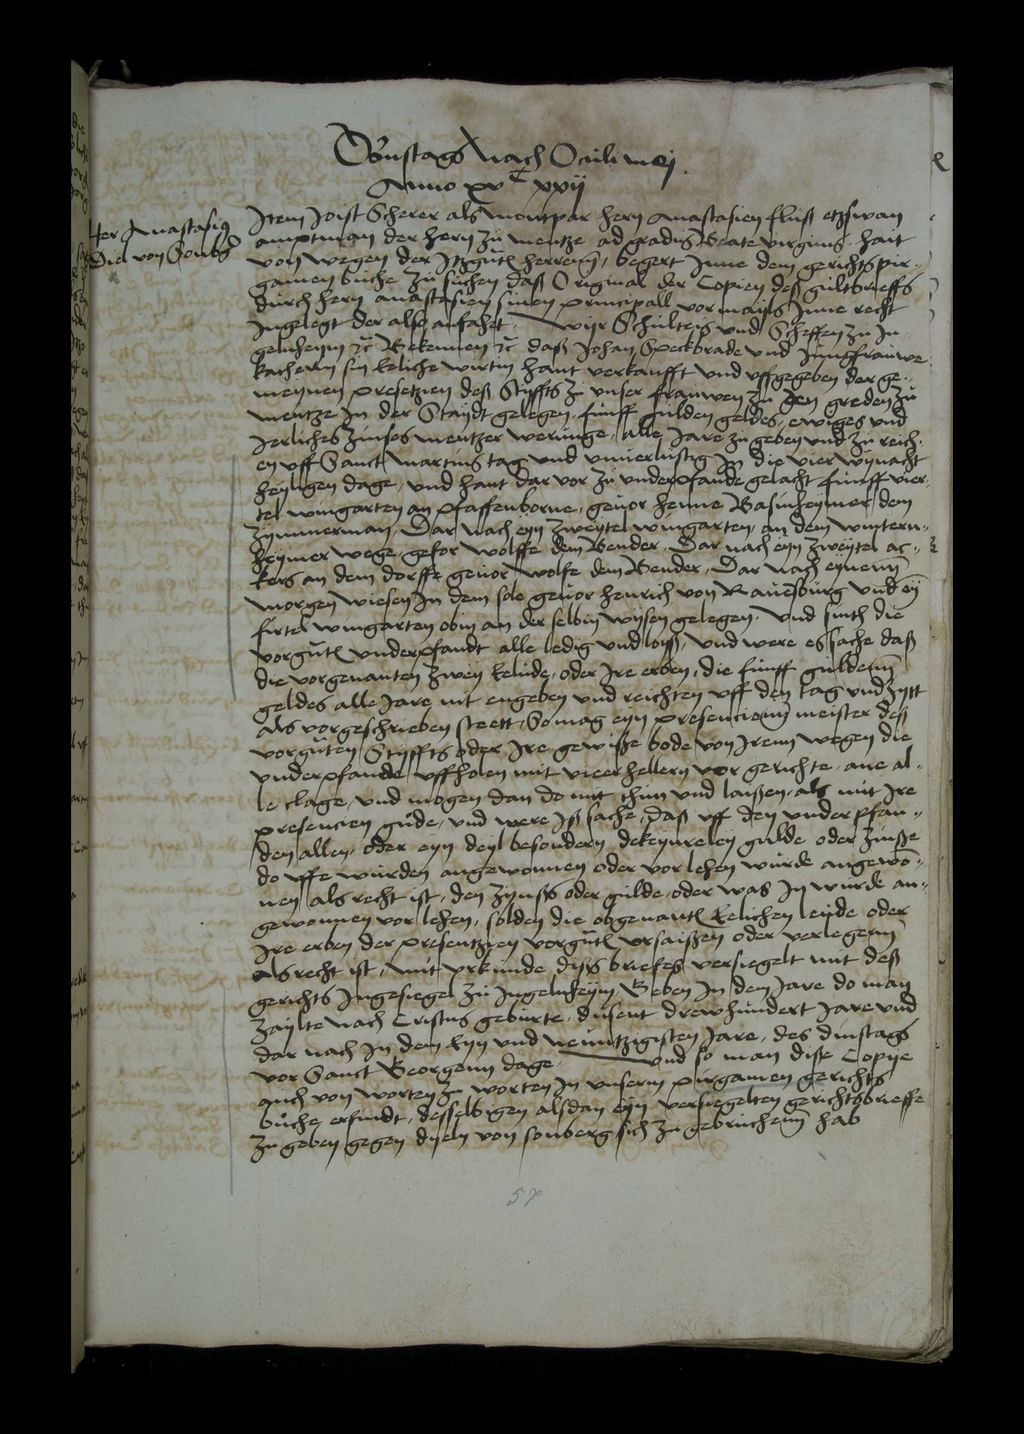 Dinstags Nach Oculi mej
Anno xvᶜ xxij
Her Anastasius
Diel von Sonbg
Item Joist Scherer als montpar hern Anastasien fluß etzwan
amptman der hern zu mentze ad gradus Beate virginis hait
von wegen der Itzgutē herrenn, begert Inne dem gerichts pir-
gamen buche zu suchen daß Original der Copien deß gultbrieffs
durch hern anastasien sinen principall vormails Inne recht
Ingelegt der also anfahet. Wijr Schulteis und Scheffen zu In
gelnheym etc Bekennen etc daß Johan Speckbrade und Junffrauwe
katherin sin eliche wirtin hant verkaufft und uffgegeben der ge-
meynen presetzien deß Styffts zu unser frauwen zu den greden zu
mentze In der Staydt gelegen, funff gulden geldes, ewiges und
Jerliches zinses mentzer werunge, alle Jare zu geben und zu reich-
en uff Sanct Martins tag und unverlustig In die vier wynacht
heyligen dage, und hant dar vor zu underpfande gelacht funff vier-
tel wingarten an pfaffenborne, gevor henne Basinheymer dem
zymmerman, Dar nach eyn zweytel wingarten an dem wintern-
heymer wege, gefor Wolffe dem Bender, Dar nach eyn zweytel ac-
kers an dem dorffe gevor wolfe dem Bender, Dar nach eynenn
morgen wiesen In dem sale gevor henrich von Ravensburg und eȳ
firtel wingarten obin an der selbin wysen gelegen, und sinth die
vorgutē underpfandt alle ledig und loyß, und were es sache daß
die vorgenanten zwey elude, oder Ire erben, die funff guldenn
geldes alle Jare nit engeben und reichten uff den tag und zytt
als vorgeschrieben steett, So mag eyn presencienn meister deß
vorguten Styffts oder Ire gewisse bode von Irenn wegen die
underpfande uffholen mit vieer hellern vor gerichte, ane al-
le clage, und mogen dan do mit thun und laißen, als mit Ire
presencien gude, und were Iß sache, daß uff den underpfan-
den allen, oder eyn deyl besondern dekeynreley gulde oder zinße
do uffe wurden angewonnen oder vor lehen wurde angewō-
nen als recht ist, den zynß oder gulde, oder was In wurde an-
gewonnen vor lehen, solden die obgenantē Elichen leude oder
Ire erben der presentzien vorgutē ersaißen oder verlegenn
als recht ist, mit urkunde dißs briefes versiegelt mit deß
gerichts Ingesiegel zu Ingelnheym Geben In dem Jare do man
zaylte nach Cristus geburte, dusent drewhundert Jare und
dar nach In dem Eyn und neuntzigisten Jare, des dinstags
vor Sanct Georgenn dage. und so man disse Copye
auch von worten zu worten In unserm pirgamen gerichts
buche erfindt, desselbigen alsdan eyn versiegelten gerichtsbrieffe
zu geben gegen dyeln von sonberg sich zu gebruchenn hab
57